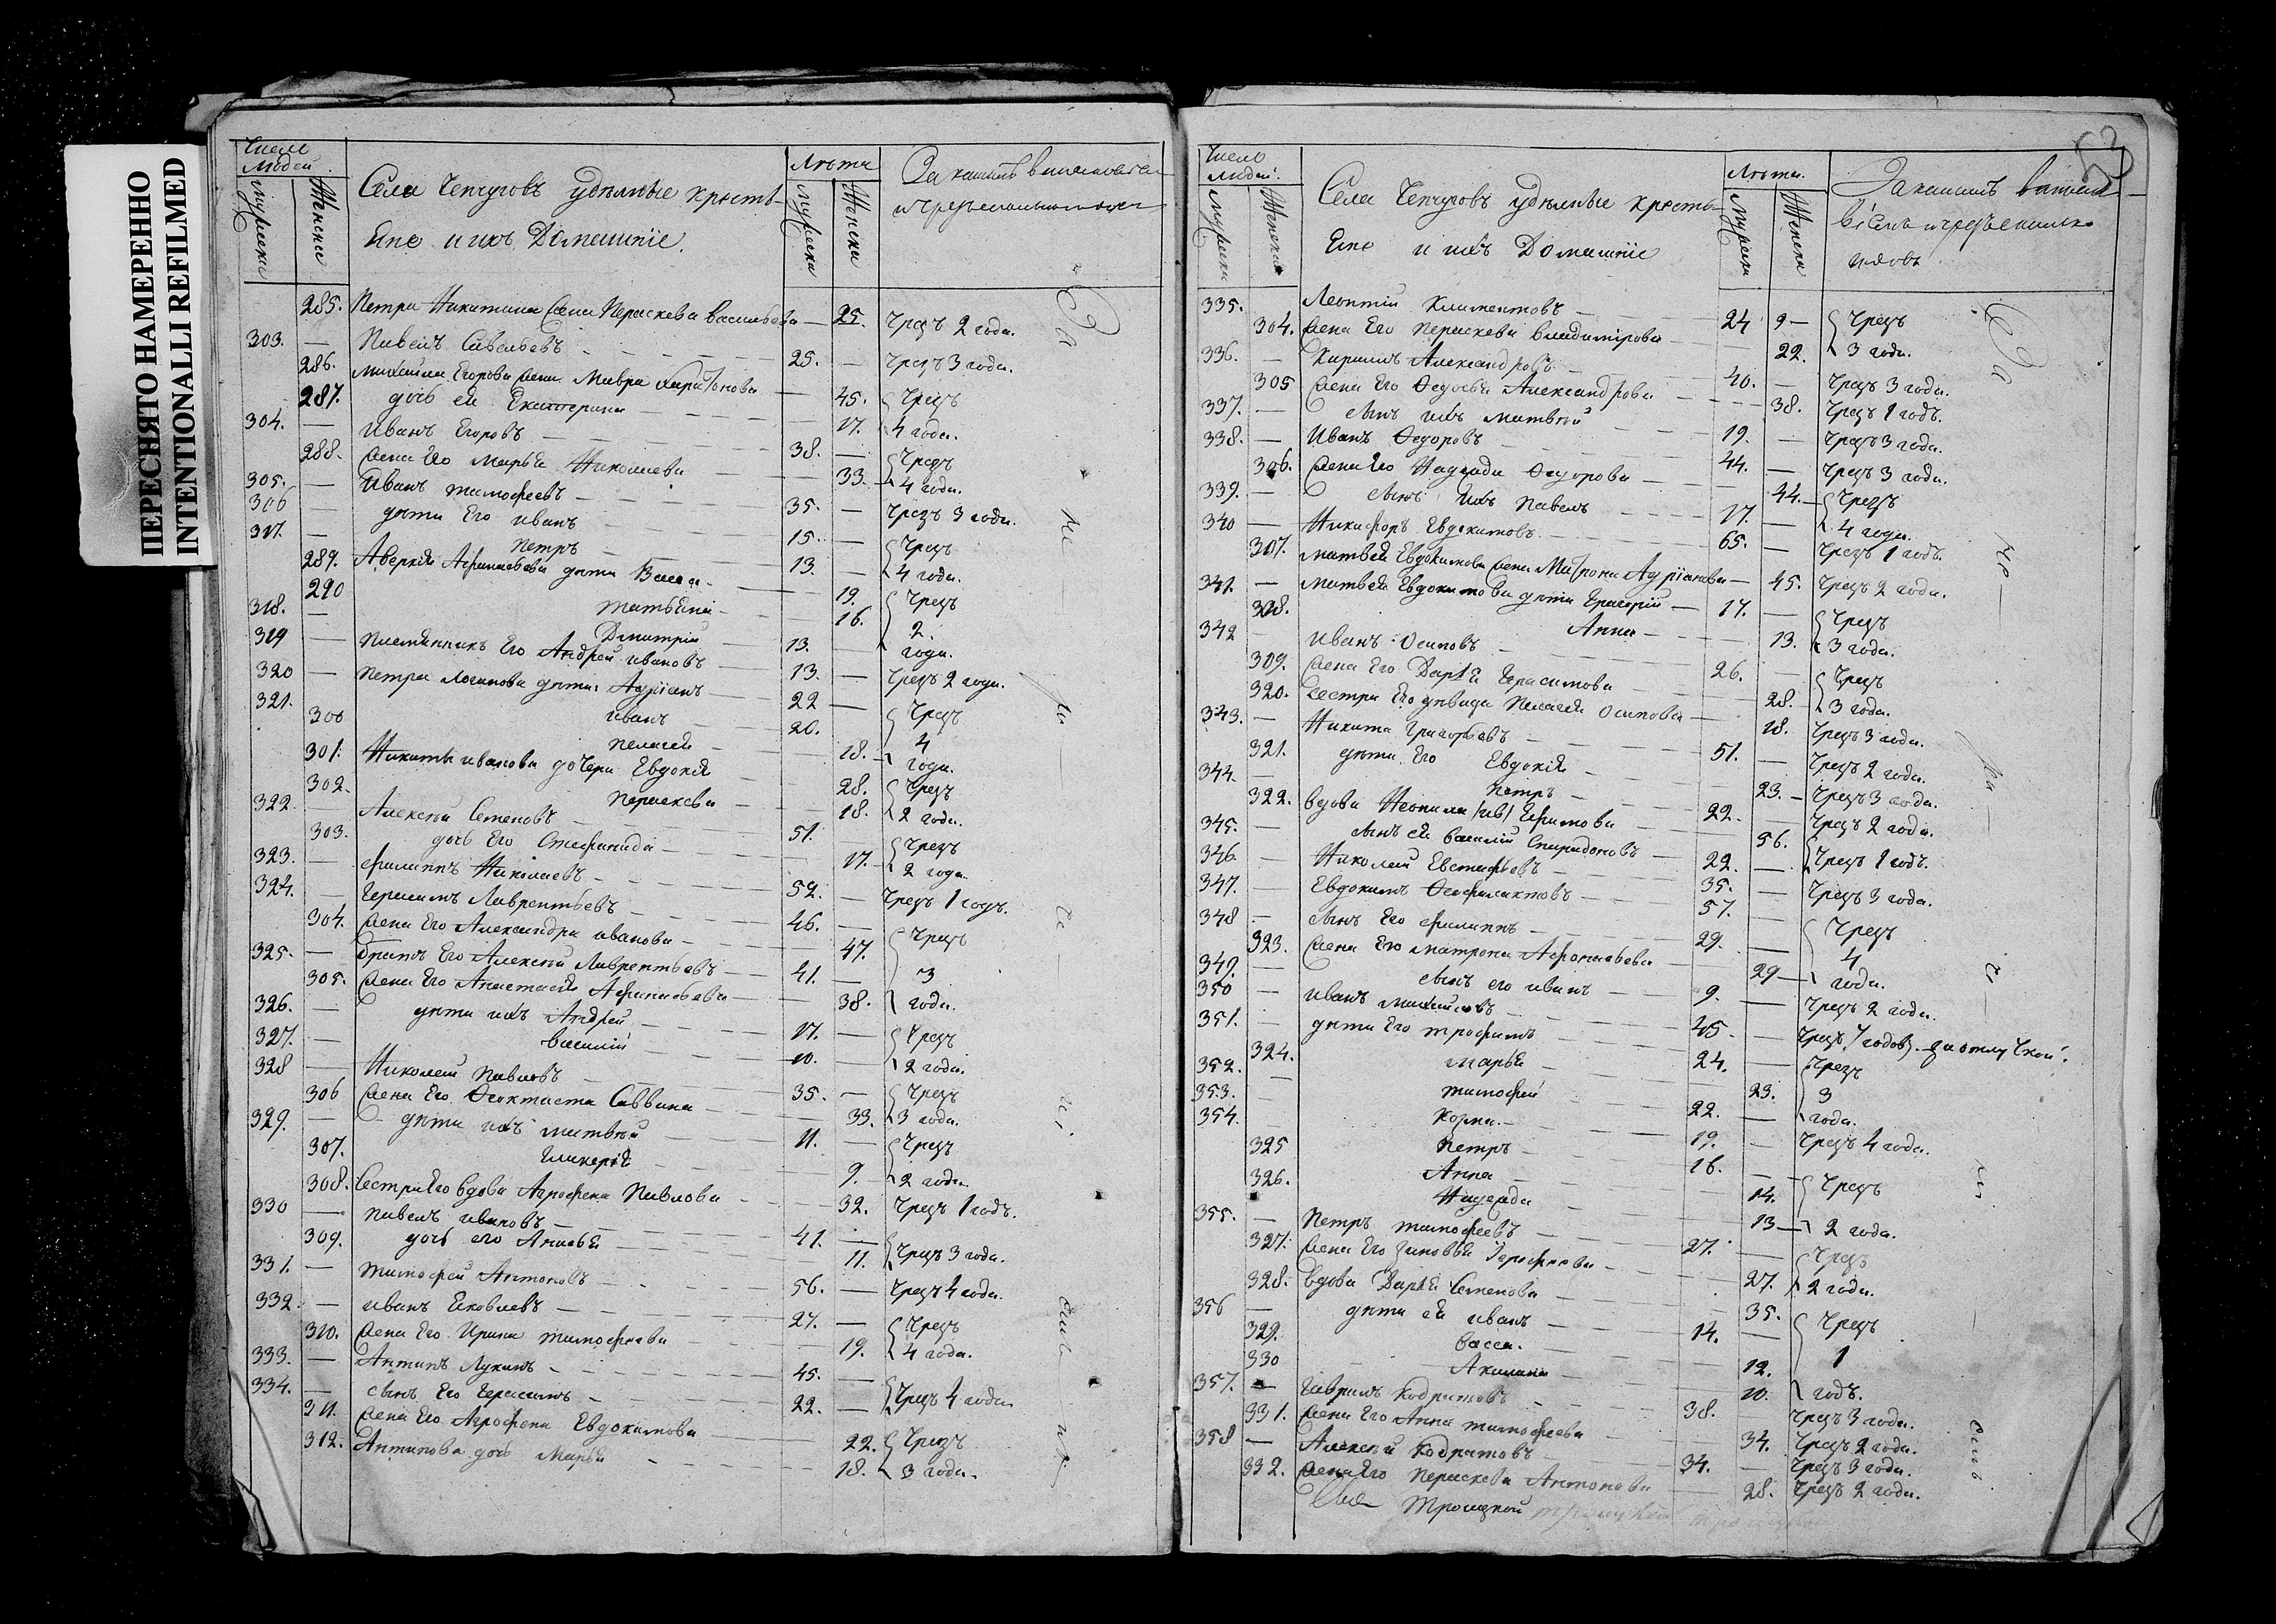 ПЕРЕСНЯТО НАМЕРЕННО
INTENTIONALLI REFILMED
Число Людей.
Мужеска
Женска
Села Чепчуговъ удѣльные кресть-
Ене и ихъ Домашніе.
Лѣта
Мужеска
Женска
285. Петра Никитина жена Параскева Васильева — 25. Чрезъ 2 года.
303. — Павелъ Савельевъ 25. — Чрезъ 3 года.
286. Михаила Егорова жена Мавра Харитонова 45. Чрезъ
287. дочь ея Екатерина 17. 4 года.
304. — Иванъ Егоровъ 38. — Чрезъ
288. жена Его Марья Николаева 33. 4 года.
305. — Иванъ Тимофеевъ 35. — Чрезъ 3 года.
306 — дѣти Его Иванъ 15. — Чрезъ
317. — Петръ 13. — 4 года.
289. Аверкія Афанасьева дѣти Васса 19. Чрезъ
290 16. 2.
318. — Дмитрій 13. — года.
319 — Племянникъ Его Андрей Ивановъ 13. — Чрезъ 2 года.
320 — Петра Логинова дѣти Адріанъ 22 — Чрезъ
321. Иванъ 20. 4
300 Пелагея 18. года.
301. Никиты Иванова дочери Евдокія 28. Чрезъ
302. Параскева 18. 2 года.
322. Алексѣй Семеновъ 51. Чрезъ
303. дочь Его Степанида 17. 2 года.
323. — Филиппъ Николаевъ 52. — Чрезъ 1 годъ.
324. — Герасимъ Лаврентьевъ 46. — Чрезъ
304. жена Его Александра Иванова 47. 3
325. — Братъ Его Алексѣй Лаврентьевъ 41. —
305. жена Его Анастасія Афанасьева 38. года.
326. — дѣти ихъ Андрей 17. — Чрезъ
327. — Василій 10. 2 года.
328 — Николай Павловъ 35. — Чрезъ
306 жена Его Феоктиста Саввина 33. 3 года.
329. — дѣти ихъ Матвѣй 11. — Чрезъ
307. Гликерія 9. 2 года.
308. Сестра Его вдова Агрофена Павлова 32. Чрезъ 1 годъ.
330 — Павелъ Ивановъ 41. — Чрезъ 3 года.
309. дочь его Анисья 11.
331. — Тимофей Антоновъ 56. — Чрезъ 4 года.
332. — Иванъ Яковлевъ 27. — Чрезъ
310. жена Его Ирина Тимофеева 19. 4 года.
333. — Антипъ Лукинъ 45. — Чрезъ 4 года
334. — сынъ Его Герасимъ 22. —
311. жена Его Агрофена Евдокимова 22. Чрезъ
312. Антипова дочь Марья 18. 3 года.
53
Число Людей.
Мужеска
Женска
Села Чепчуговъ удѣльные кресть-
Ене и ихъ Домашніе
Лѣта.
Мужеска
Женска
335. Леонтій Климентовъ 24 Чрезъ
304. жена Его Параскева Владимірова 22. 3 года.
336. — Кирилъ Александровъ 40. — Чрезъ 3 года.
305 жена Его Федосья Александрова 38. Чрезъ 1 годъ.
337. — сынъ ихъ Матвѣй 19. — Чрезъ 3 года.
338. — Иванъ Федоровъ 44. — Чрезъ 3 года.
306. жена Его Надежда Федорова 44. Чрезъ
339. — сынъ ихъ Павелъ 17. — 4 года.
340 — Никифоръ Евдокимовъ 65. — Чрезъ 1 годъ.
307. Матвея Евдокимова жена Матрона Адріанова — 45. Чрезъ 2 года.
341. — Матвея Евдокимова дѣти Григорій 17. — Чрезъ
308. Анна 13. 3 года.
342 — Иванъ Осиповъ 26. — Чрезъ
309. жена Его Дарья Герасимова 28. 3 года.
320. Сестра Его дѣвица Пелагея Осипова 18. Чрезъ 3 года.
343. — Никита Григорьевъ 51. — Чрезъ 2 года.
321. дѣти Его Евдокія 23. Чрезъ 3 года.
344. — Петръ 22. — Чрезъ 2 года.
322. вдова Ефимова 56. Чрезъ 1 годъ.
345. — сынъ ея Василій Спиридоновъ 22. —
346 — Николай Евстафьевъ 35. — Чрезъ 3 года.
347. — Евдокимъ Феофилактовъ 57. Чрезъ
348 — сынъ Его Филиппъ 29. — 4
323. жена Его Матрона Афанасьева 29 — года.
349. — сынъ его Иванъ 9. — Чрезъ 2 года.
350 — Иванъ Михайловъ 45. — Чрезъ 7 годовъ за отлучкой.
351. — дѣти Его Трофимъ 24. — Чрезъ
324. Марья 23. 3
352. — Тимофей 22. — года.
353. — Козма 19. — Чрезъ 4 года.
354. Петръ 16. — Чрезъ
325 Анна 14.
326. Надежда 13 — 2 года.
355. — Петръ Тимофеевъ 27. — Чрезъ
327. жена Его Зиновья 27. 2 года.
328. вдова Дарья Семенова 35. Чрезъ
356 — дѣти ея Иванъ 14. — 1
329. Васса. 12.
330 Акилина 10. годъ.
357. — Гаврилъ Кодратовъ 38. Чрезъ 3 года.
331. жена Его Анна Тимофеева 34. Чрезъ 2 года.
358 — Алексей Кодратовъ 34. — Чрезъ 3 года.
332. жена Его Параскева Антонова 28. Чрезъ 2 года.
Троицкой